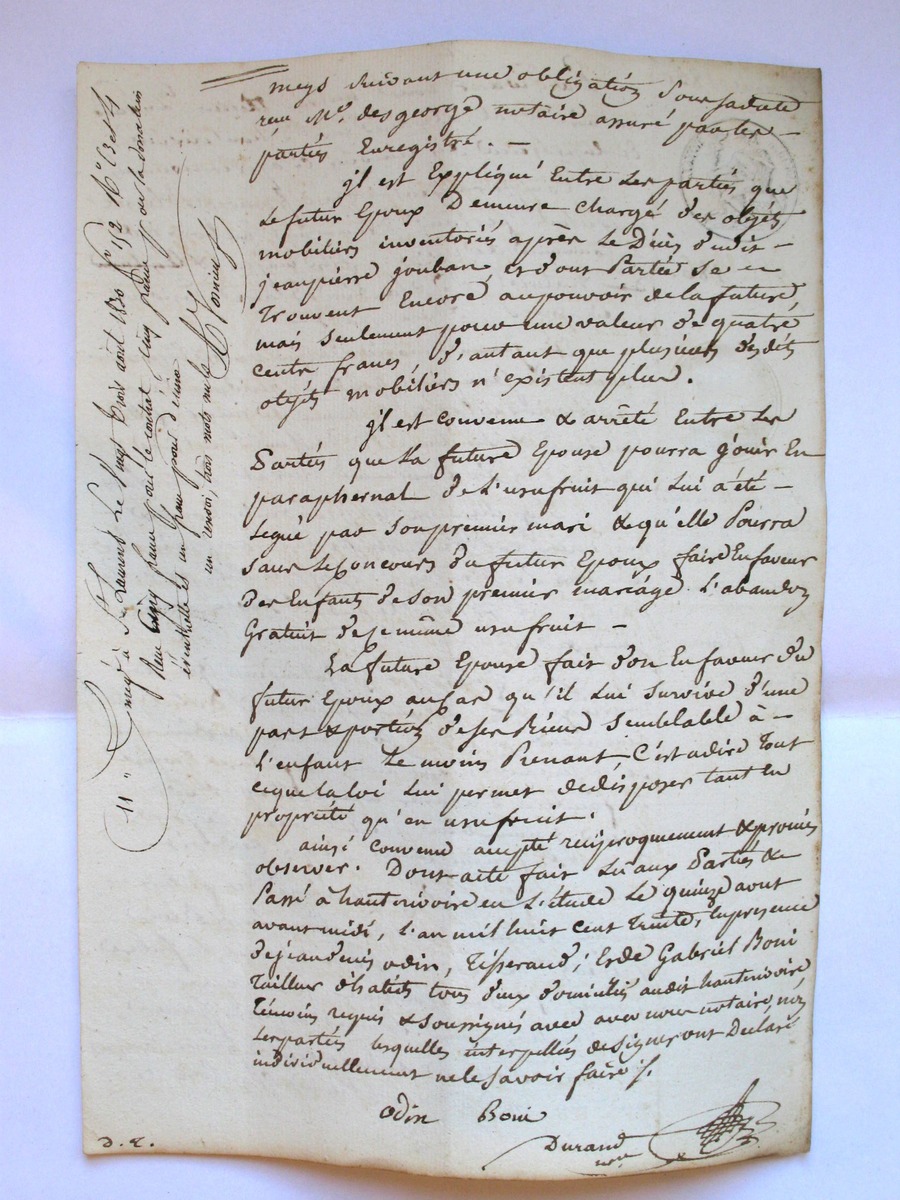 meys suivant une obligation sous sa date
reçu Me. desgeorge notaire assuré par les
parties Enregistré. —
jl est Expliqué Entre Les parties que
Le futur Epoux Demeure chargé des objets
mobiliers inventoriés après Le Décès dudit —
jean pierre jouban, et dont Partie Se
Trouvent Encore au pouvoir de la future,
mais seulement pour une valeur de quatre
cents francs, d'autant que plusieurs desdits
objets mobiliers n'existent plus.
jl est convenu & arrêté Entre Les
Parties que La future Epouse pourra jouir En
paraphernal de L'usufruit qui Lui a été —
Legué par son premier mari & qu'elle Pourra
sans Le Concours du futur Epoux faire En faveur
des Enfants de son premier mariage L'abandon
Gratuit de ce même usufruit —
La future Epouse fait don En faveur du
futur Epoux au Cas qu'il Lui Survive d'une
part & portion de ses Biens Semblable à —
L'enfant Le moins Prenant, C'est a dire Tout
ce que La loi Lui permet de disposer tant En
propriété qu'en usufruit.
ainsi convenu accepté reciproquement & promis
observer. Dont acte fait Lu aux Parties &
Passé à hauterivoire en L'étude Le quinze aout
avant midi, L'an mil huit cent Trente, En presence
de jean denis odin, Tisserand, Et de Gabriel Boni
Tailleur d'habits tous deux domiciliés audit hauterivoire
Témoins requis & soussignés avec avec nous notaire, non
Les parties lesquelles interpellées de signer ont Declaré
individuellement ne le savoir faire /.
odin Boni
Durand
nre
D. E.
11" Enregé à St Laurent Le vingt trois aout 1830 fo 152 Ro Ces 4
Reçu cinq francs pour le contrat cinq francs pour la donation
éventuelle et un franc pour décime
un renvoi, trois mots nuls